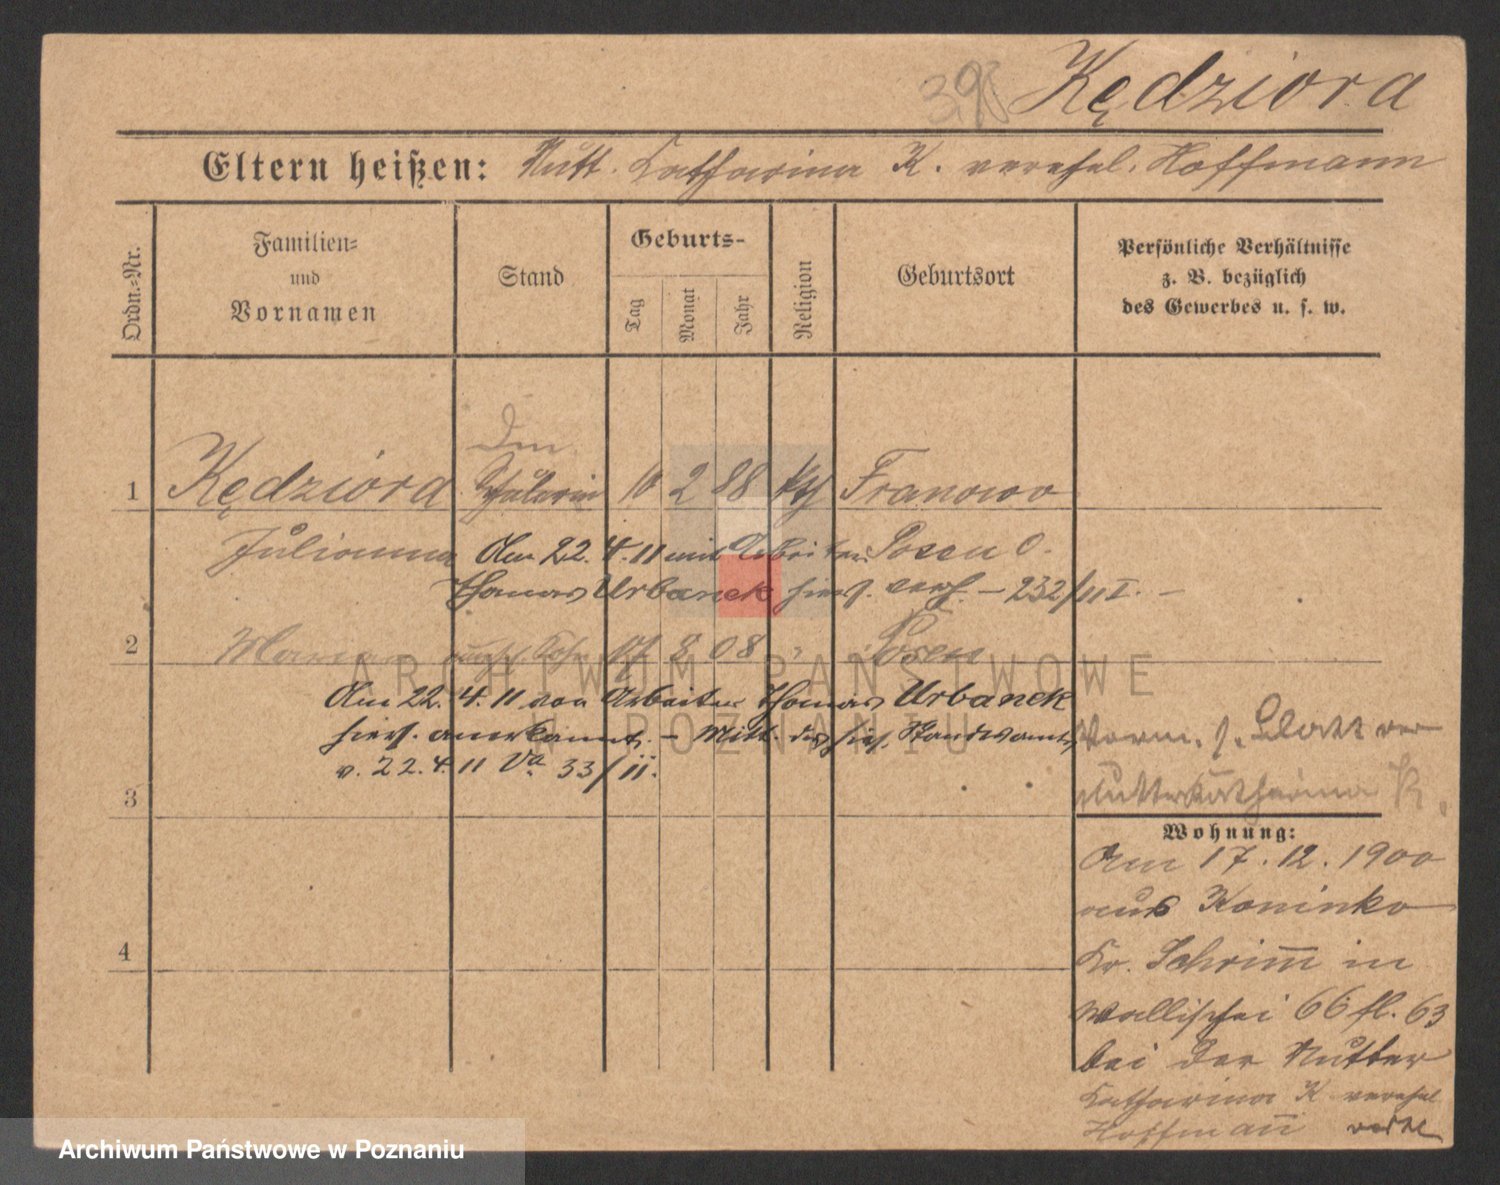 Kędziora
Eltern heißen: Mutt. Katharina K. verehel. Hoffmann
Ordn.-Nr.
Familien-
und
Vornamen
Stand
Geburts-
Tag
Monat
Jahr
Religion
Geburtsort
Persönliche Verhältnisse
z. B. bezüglich
des Gewerbes u. s. w.
1 Kędziora Schülerin 10 2 88 kth Franowo
Julianna Am 22. 4. 11 mit Arbeiter Posen O.
Thomas Urbanek hiers. verh. – 232/11 I. –
2 Marian 8 08 " Posen
Am 22. 4. 11 von Arbeiter Thomas Urbanek
hiers. anerkannt. – Mitt. des hies. Standesamts
v. 22. 4. 11 Va 33/11.
Vorm. s. Blatt der
Mutter Katharina K.
3
Wohnung:
Am 17. 12. 1900
aus Koninko
Kr. Schrimm in
Wallischei 66 fl. 63
bei der Mutter
Katharina K verehel
Hoffmann
4
ARCHIWUM PAŃSTWOWE
W POZNANIU
Archiwum Państwowe w Poznaniu